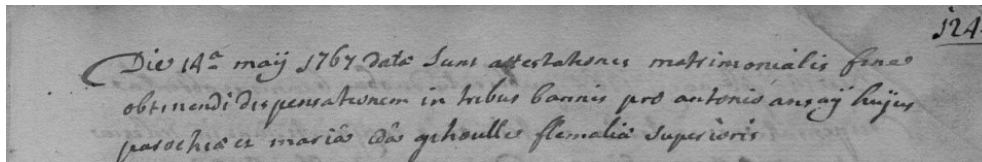 124
Die 14a maÿ 1767 datæ sunt attestationes matrimonialis fine
obtinendi dispensationem in tribus bannis pro antonio ansaÿ hujus
parochiæ et mariâ gehoulle flemaliæ superioris